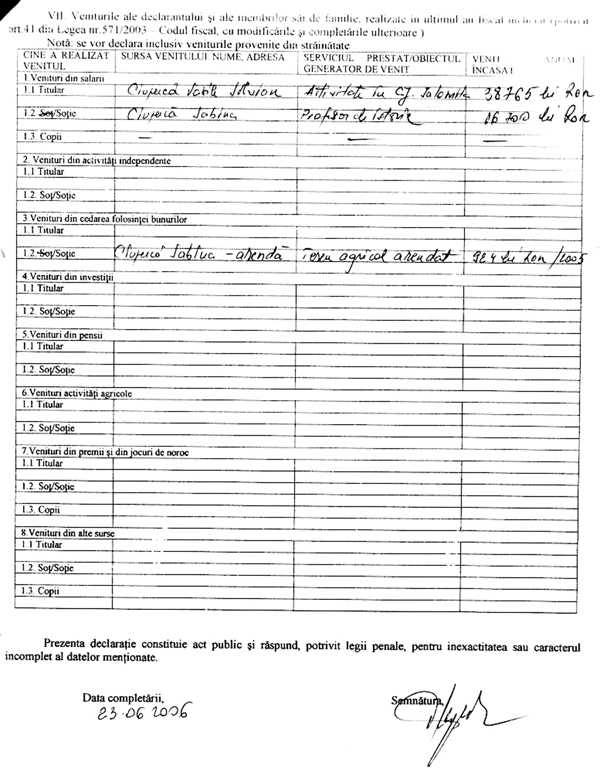 VII. Veniturile ale declarantului şi ale membrilor săi de familie, realizate în ultimul an fiscal încheiat (potrivit
art.41 din Legea nr.571/2003 – Codul fiscal, cu modificările şi completările ulterioare )
Notă: se vor declara inclusiv veniturile provenite din străinătate
CINE A REALIZAT VENITUL SURSA VENITULUI NUME, ADRESA SERVICIUL PRESTAT/OBIECTUL GENERATOR DE VENIT VENIT ANUAL ÎNCASAT
1.Venituri din salarii
1.1 Titular Ciupercă Vasile Silvian Activitate la Cj. Ialomița 38765 lei Ron
1.2 Soţ/Soţie Ciupercă Sabina Profesor de Istorie 16 700 lei Ron
1.3. Copii — —
2. Venituri din activităţi independente
1.1 Titular
1.2. Soţ/Soţie
3.Venituri din cedarea folosinţei bunurilor
1.1 Titular
1.2 Soţ/Soţie Ciupercă Sabina - arendă Teren agricol arendat 924 lei Ron/2005
4.Venituri din investiţii
1.1 Titular
1.2. Soţ/Soţie
5.Venituri din pensii
1.1 Titular
1.2. Soţ/Soţie
6.Venituri activităţi agricole
1.1 Titular
1.2. Soţ/Soţie
7.Venituri din premii şi din jocuri de noroc
1.1 Titular
1.2. Soţ/Soţie
1.3. Copii
8.Venituri din alte surse
1.1 Titular
1.2. Soţ/Soţie
1.3. Copii
Prezenta declaraţie constituie act public şi răspund, potrivit legii penale, pentru inexactitatea sau caracterul
incomplet al datelor menţionate.
Data completării, Semnătura,
23.06 2006